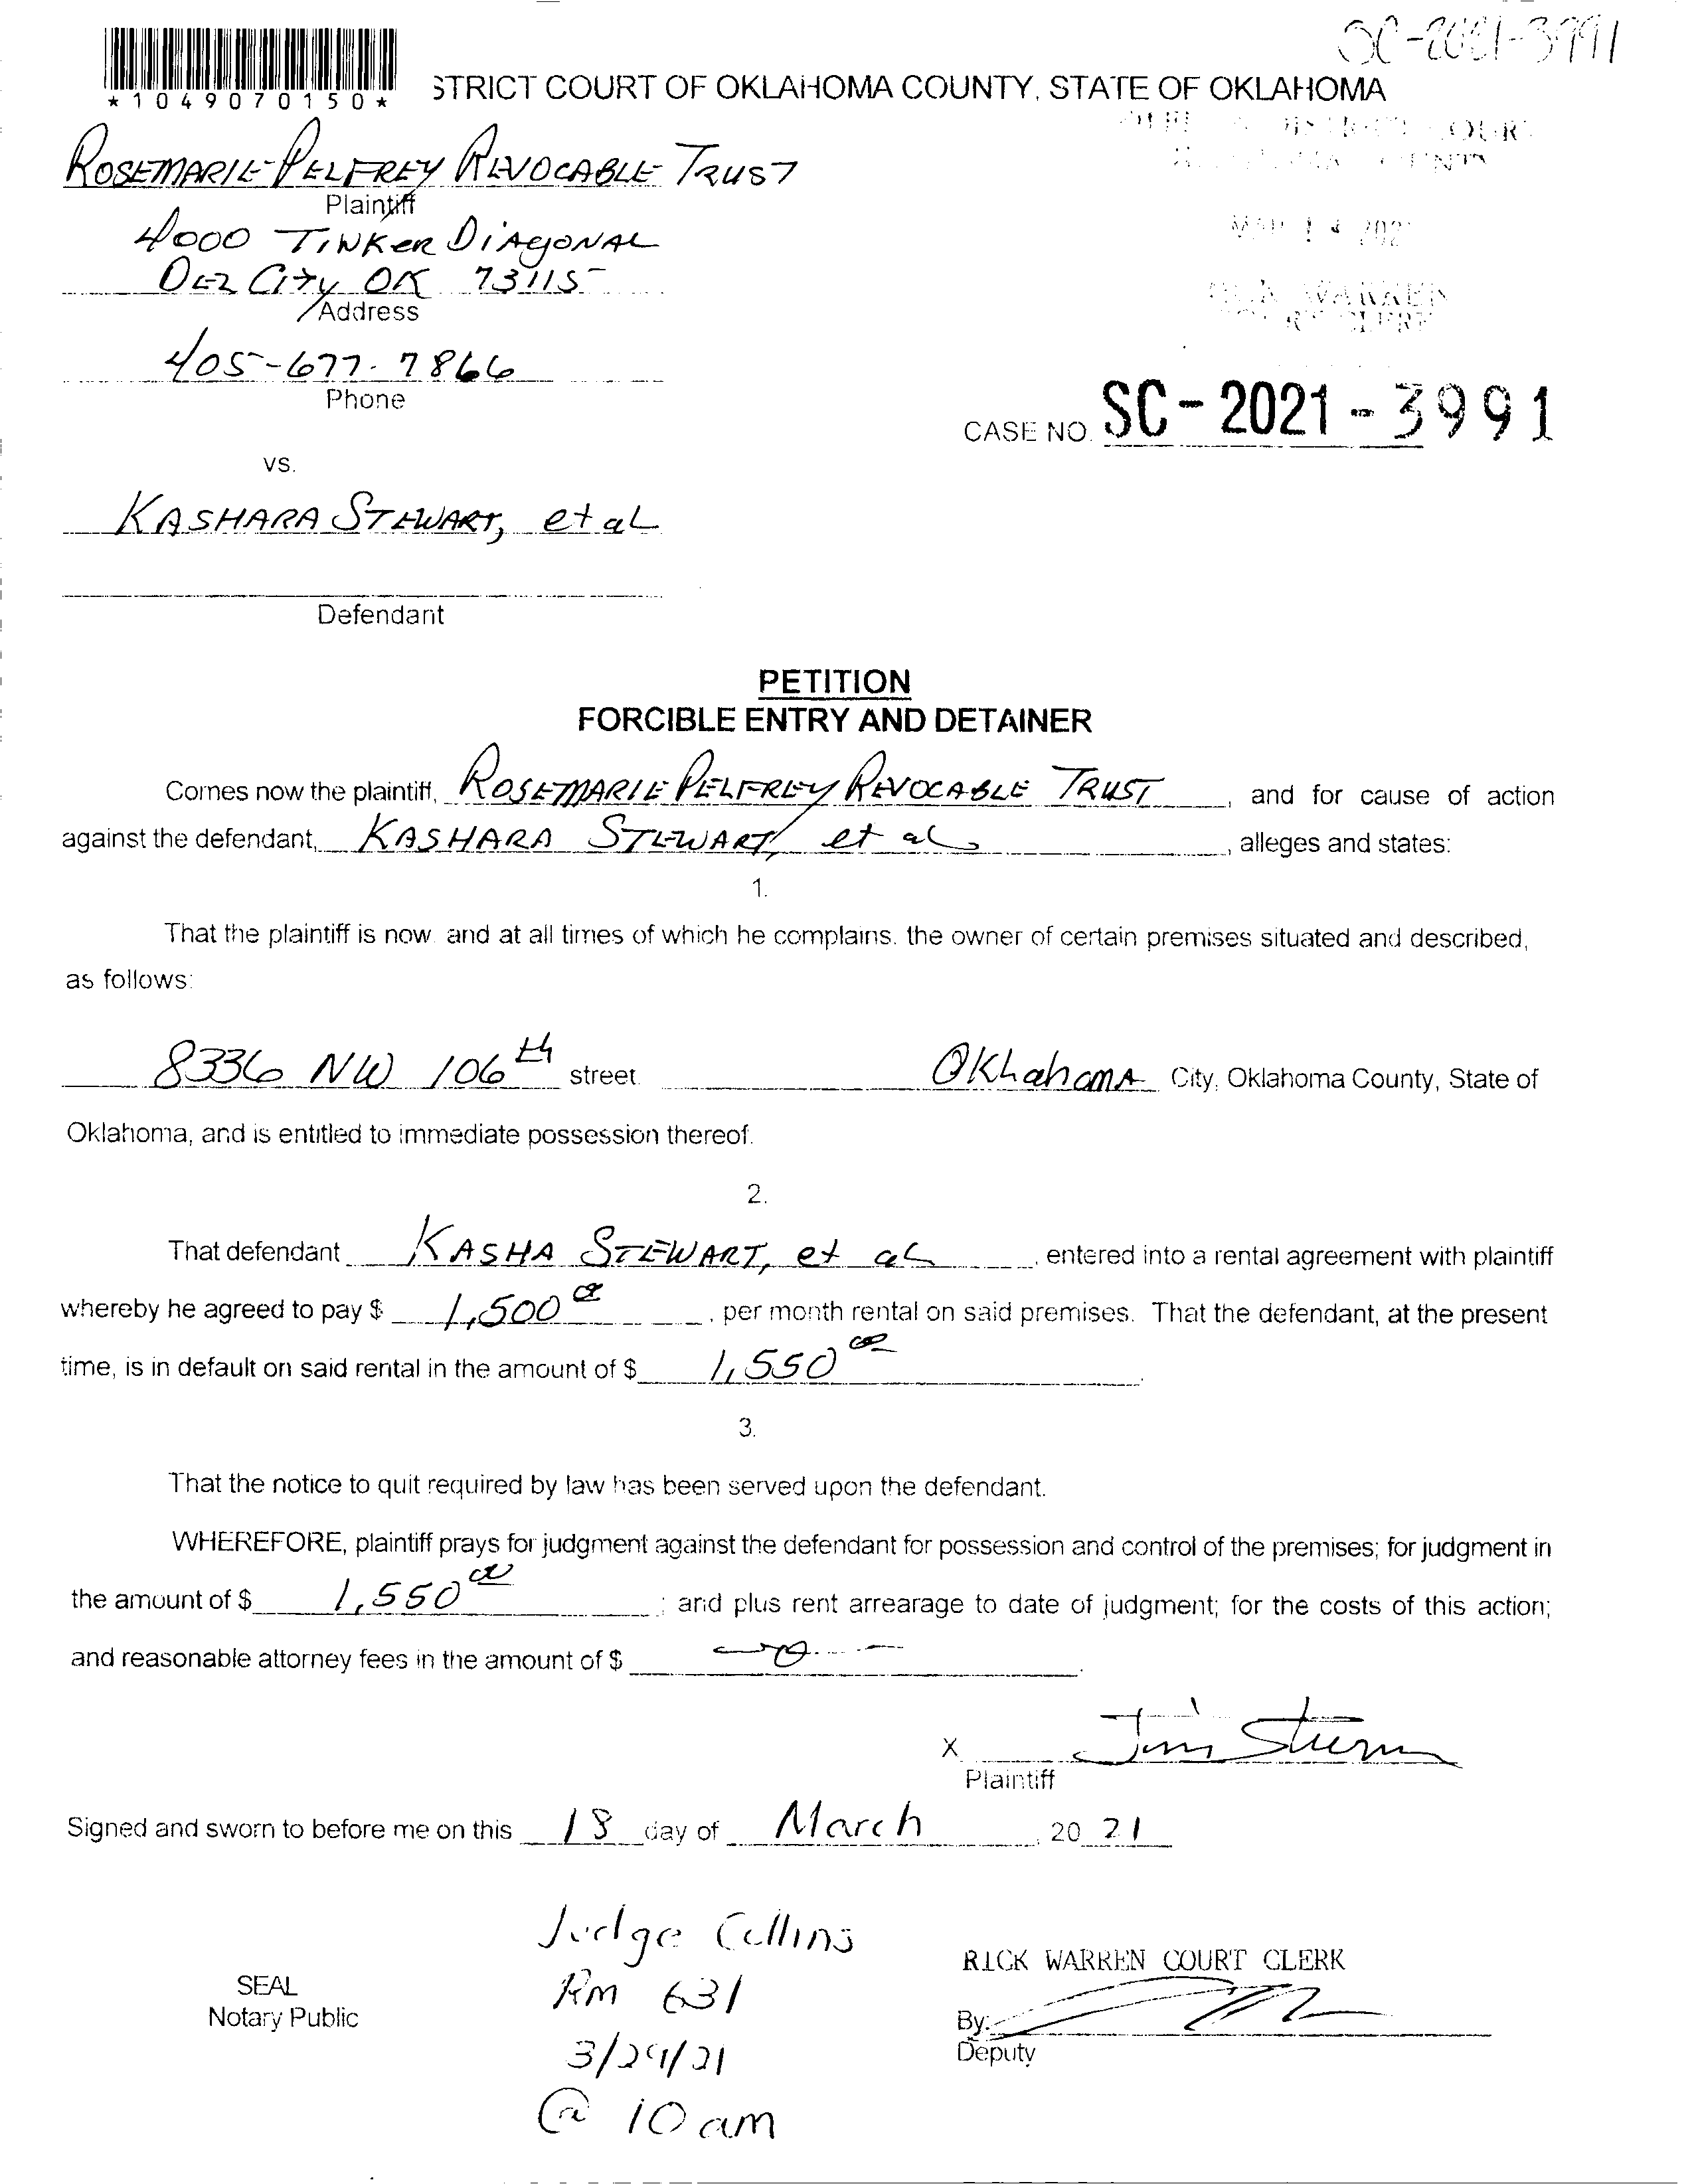 SC-2021-3991
*1049070150*
STRICT COURT OF OKLAHOMA COUNTY, STATE OF OKLAHOMA
ROSEMARIE PELFREY REVOCABLE TRUST
Plaintiff
4000 TINKER DIAGONAL
DEL CITY OK 73115
Address
405-677-7866
Phone
RICK WARREN
COURT CLERK
CASE NO. SC-2021-3991
vs.
KASHARA STEWART, et al
Defendant
PETITION
FORCIBLE ENTRY AND DETAINER
Comes now the plaintiff, ROSEMARIE PELFREY REVOCABLE TRUST, and for cause of action
against the defendant, KASHARA STEWART, et al, alleges and states:
1.
That the plaintiff is now, and at all times of which he complains, the owner of certain premises situated and described,
as follows:
8336 NW 106th street Oklahoma City, Oklahoma County, State of
Oklahoma, and is entitled to immediate possession thereof.
2.
That defendant KASHA STEWART, et al, entered into a rental agreement with plaintiff
whereby he agreed to pay $ 1,500 00, per month rental on said premises. That the defendant, at the present
time, is in default on said rental in the amount of $ 1,550 00.
3.
That the notice to quit required by law has been served upon the defendant.
WHEREFORE, plaintiff prays for judgment against the defendant for possession and control of the premises; for judgment in
the amount of $ 1,550 00; and plus rent arrearage to date of judgment; for the costs of this action;
and reasonable attorney fees in the amount of $ -0-.
X Jim Sturm
Plaintiff
Signed and sworn to before me on this 18 day of March, 20 21
Judge Collins
Rm 631
3/29/21
@ 10 am
SEAL
Notary Public
RICK WARREN COURT CLERK
By:
Deputy